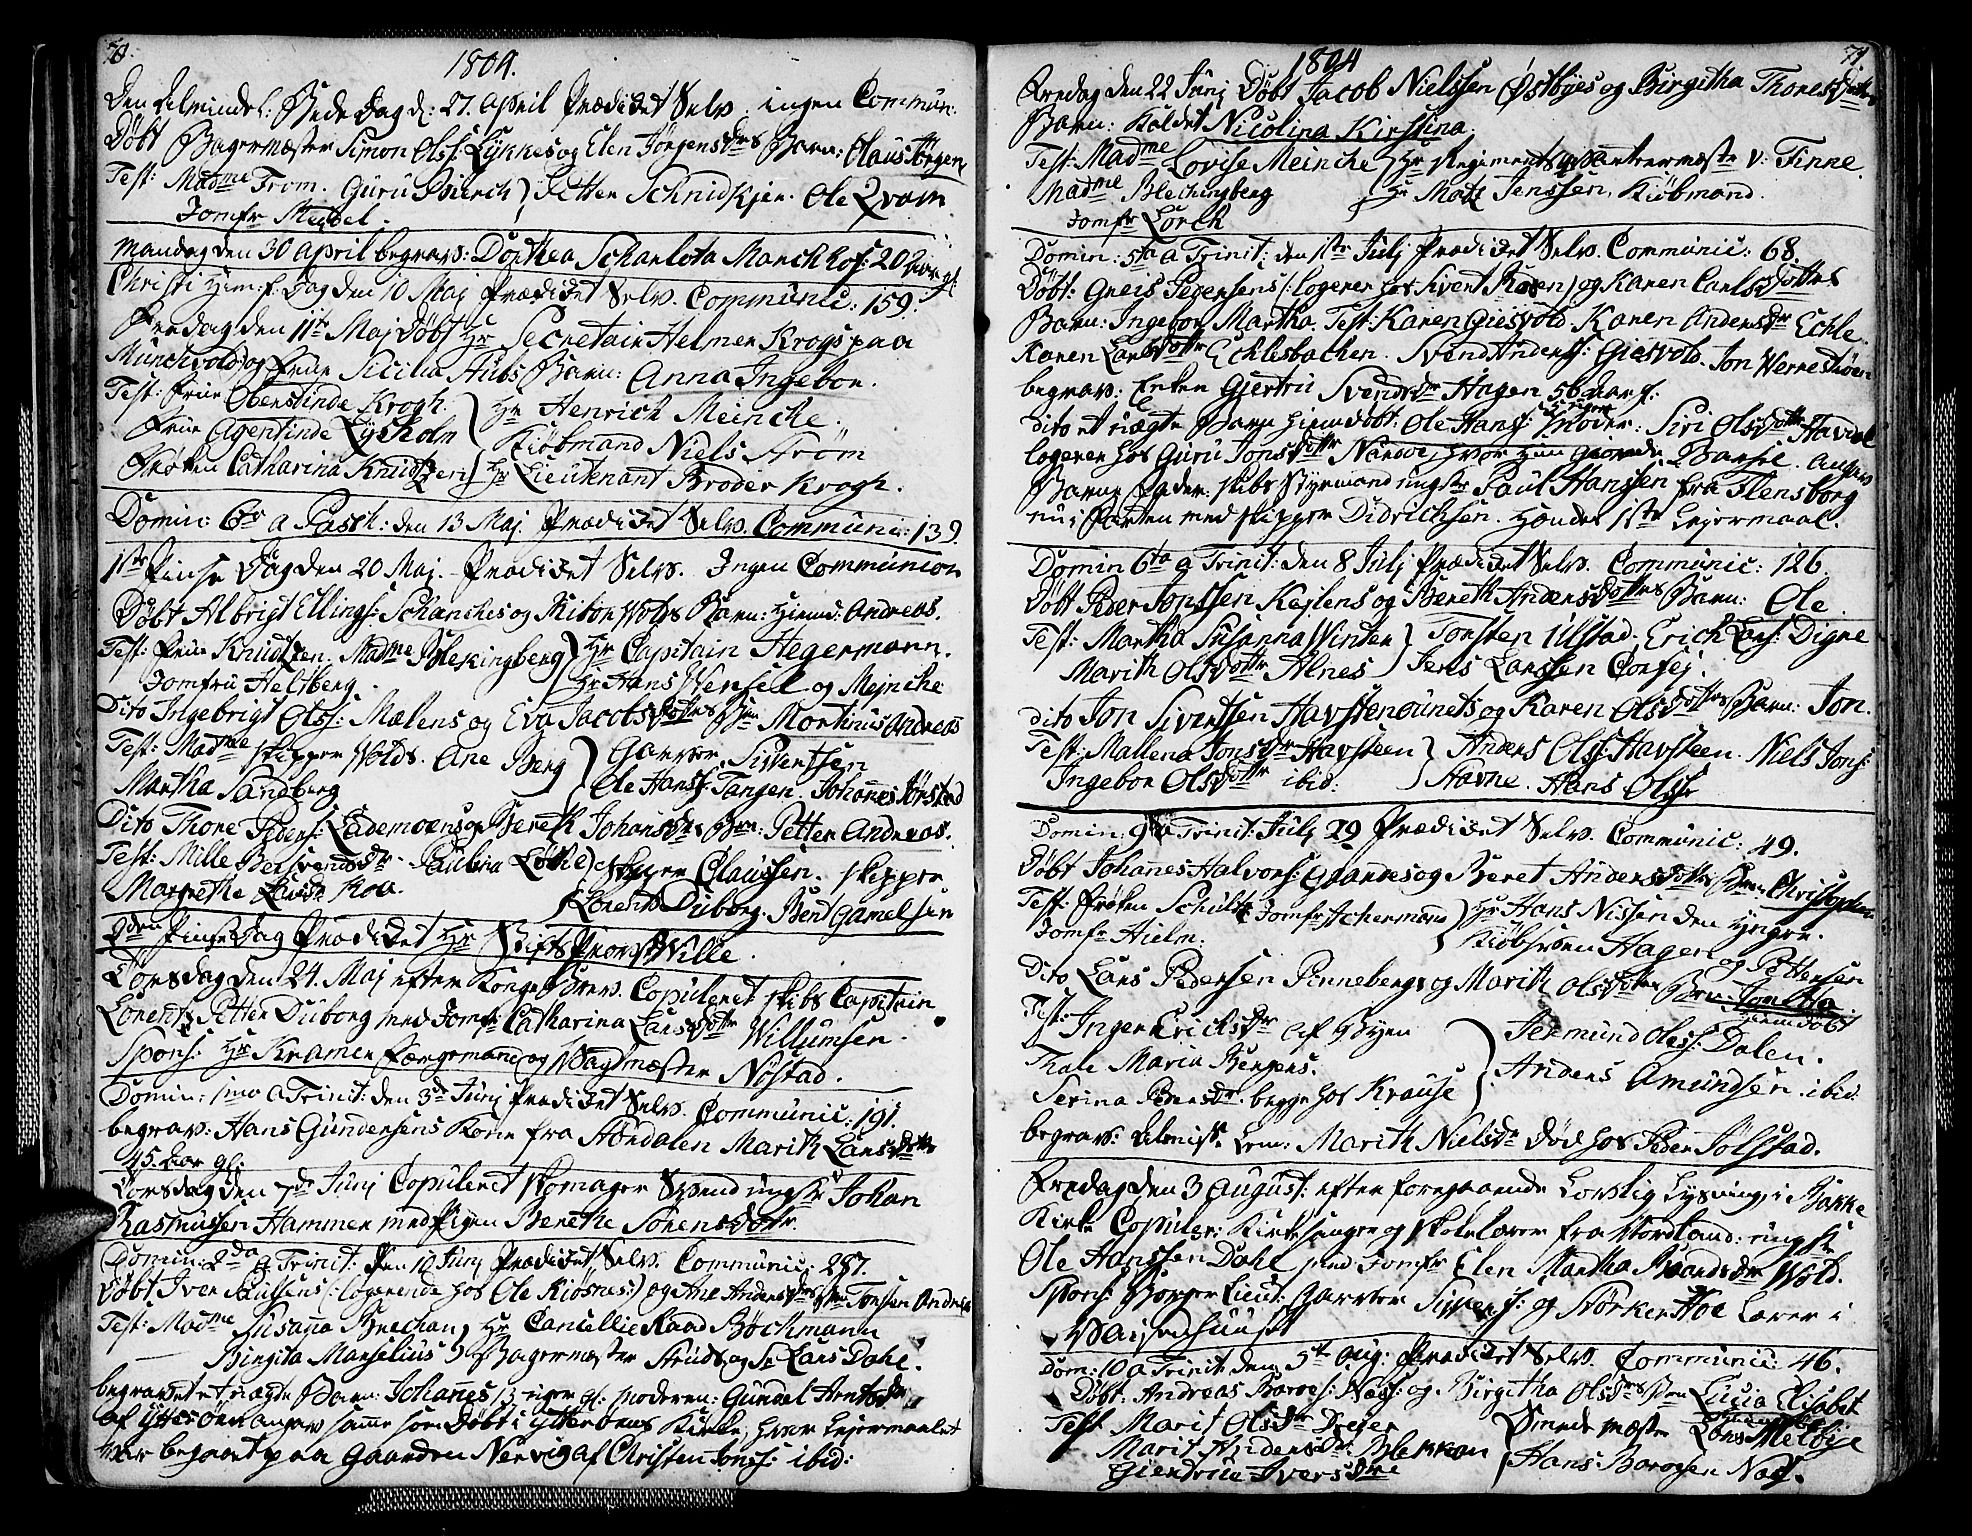 70.
1804.
Den Almindel: Bede Dag d: 27. April Prædicket Selv. ingen Commun:
Døbt Bagermester Simon Olss: Lykkes og Elen Jörgensdrs Barn: Claus Jörgen
Test: Madme From. Guru Burch) Petter Schnidkjer. Ole Qvam
Jomfr
Mandag den 30 April begrav: Dorthea Scharlota Manchhof: 20 Aar gl
Christi Himf: Dag den 10 Maj Prædicket Selv. Communic: 159.
Fredag den 11te Maj Døbt Hr Secretair Helmer Krogs paa
Munchvold og Frue Sicilia Aubs Barn: Anna Ingebor.
Test: Frue Obenstinde Krogh. Hr Henrich Meincke.
Frue Agentinde Lysholm Kiöbmand Niels Ström
Frøken Catharina Knudtzen) Hr Lieutenant Broder Krogh.
Domin: 6te a Pasch: den 13 Maj. Prædicket Selv. Communic: 139.
1ste Pinse Dag den 20 Maj. Prædicket Selv. Ingen Communion
Døbt Albrigt Ellings: Schanches og Wolds Barn: Hjemd: Andreas.
Test: Frue Knudtzen. Madme Blekingberg) Hr Capitain Hegermann.
Jomfru Helsberg. Hr Hans Wensell og Mejncke
Dito Ingebrigt Olss: Mælens og Eva Jacobsdotters Bn Mortinus Andreas
Test: Madme Skipper Wolds. Ane Berg) Garver Sivertsen
Martha Sandberg Ole Hans: Tangen. Johanes Jörstad
Dito Thore Peders: Lademoens og Bereth Johansdrs Brn: Petter Andreas.
Test: Mille Bersvendsdr. Paulina Lökke) Claussen. Skipper
Margrethe Roe. Lorents Duborg. Bent Gamelsen
2den Pinse Dag Prædicket Hr StiftsProvst Wille.
Torsdag den 24. Maj efter Konge Brev. Copuleret Skibs Capitain
Lorents Petter Duborg med Jomfr Catharina Larsdottr Willumsen.
Spons: Hr Kramer Færgemand og Vagtmester Nöstad.
Domin: 1mo a Trinit: den 3de Junj Prædicket Selv. Communic: 191.
begrav: Hans Gundersens Kone fra Stördalen Marith Larsdottr
45. Aar gl:
Torsdag den 7de Junj Copuleret Skomager Svend ungkr Johan
Rasmussen Hammer med Pigen Berethe Sörensdotr.
Domin: 2da a Trinit: Den 10 Junj Prædicket Selv. Communic: 287.
Døbt Iver Poulsens (: logerende hos Ole Kiosnes:) og Ane Andersdrs Bn Torsen Andrea
Test: Madme Susana Brechan Hr Cancellie Raad Böckmann
Birgita Marselius) Bagermester Struds og Lars Dahl.
begravet et uægte Barn: Johanes 13 uger gl: Moderen: Gundel Arntsdr
af Ytterøen angav samme som døbt i Ytterøens Kirke, hvor Lejermaalet
var begaaet paa Gaarden Nervig af Christen Jons: ibid:

71.
1804
Fredag den 22 Junj Døbt Jacob Nielssen Østbyes og Birgitha Thoresdotters
Barn: Kaldet Nicolina Kirstina.
Test: Madme Lovise Meincke) Hr Regiments Qvarteermestr v: Finne.
Madme Blechingberg Hr Mats Jenssen, Kiöbmand.
Jomfr Lorch
Domin: 5ta a Trinit: den 1ste Julj Prædicket Selv. Communic: 68.
Døbt: Gneis Pedersens (: logerer hos Sivert Rosen) og Karen Carlsdotters
Barn: Ingebor Martha. Test: Karen Giesvold. Karen Andersdr Echle.
Karen Larsdottr Echlesbachen. Svend Anderss: Giesvold. Jon Werneshöen
begrav: Enken Giertru Svendsdr Hagen 56 Aar gl:
dito et uægte Barn hjemdøbt: Ole Hans: Moder: Siri Olsdotter Havdal
logerer hos Guru Jonsdottr Nardoe, hvor hun giorde Barsel. Angav
Barne Fader: Skibs Styrmand ungkr Paul Hanssen fra Flensborg
nu i Farten med Skipper Didricksen. Hendes 1ste Lejermaal.
Domin 6ta a Trinit: den 8 Julj Prædicket Selv. Communic: 126.
Døbt Peder Jonssen Kejlens og Bereth Andersdotters Barn: Ole.
Test: Martha Susanna Winter) Torsten Ulstad. Erich Lars: Digre
Marith Olsdottr Alnes) Jens Larssen Corsej.
dito Jon Sivertsen Havstenøunets og Karen Olsdotters Barn: Jon.
Test: Mallena Jonsdr Havsteen) Anders Olss: Havsteen. Niels Jons:
Ingebor Olsdottr ibid:) Stavne. Hans Olss:
Domin: 9de a Trinit: Julj 29 Prædicket Selv. Communic: 49.
Døbt Johanes Halvors: Grandes og Beret Andersdotters Barn: Christopher
Test: Frøken Schults Jomfr Achermann) Hr Hans Nissen den yngre.
Jomfr Hielm. Kiöbsven Hager og Pettersen
Dito Lars Pedersen Pinnebergs og Marith Olsdotters Brn:
hiemdøbt
Test: Inger Erichsdr af Byen Jermund Olss: Dalen.
Thale Maria Bergers. Anders Amundsen. ibid:
Serina Pedersdr. begge hos Krause
begrav: Almiss. Lem: Marith Nielsdr død hos Peder Sölstad.
Fredag den 3 August: efter foregaaende Lovlig Lysning i Bakke
Kirke Copuler: Kirkesanger og Skolelærer fra Nordland: ungkr
Ole Hanssen Dahl med Jomfr Elen Martha Brandsdr Wold.
Spons: Borger Lieut: Garver Sivers: og Störker Hoe Lærer i
Vaisenhuuset
Dom: 10 a Trinit: den 5te Aug: Prædicket Selv. Communic: 46.
Døbt: Andreas Baroes: Næss: og Birgitha Olsdrs Bn Lucia Elisabet
Test Marit Olsdr Dreier Smede Mester Lars Melöye
Marit Andersdr. Blekkan Hans Baroesen Næs.
Giertrue Iversdr